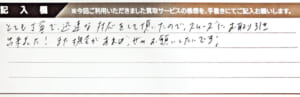 記入欄 ※今回ご利用いただきました買取サービスの感想を、手書きにてご記入お願いします。
とても丁寧で、迅速な対応をして頂いたので、スムーズにお取り引き
出来ました！また機会があれば、ぜひお願いしたいです！